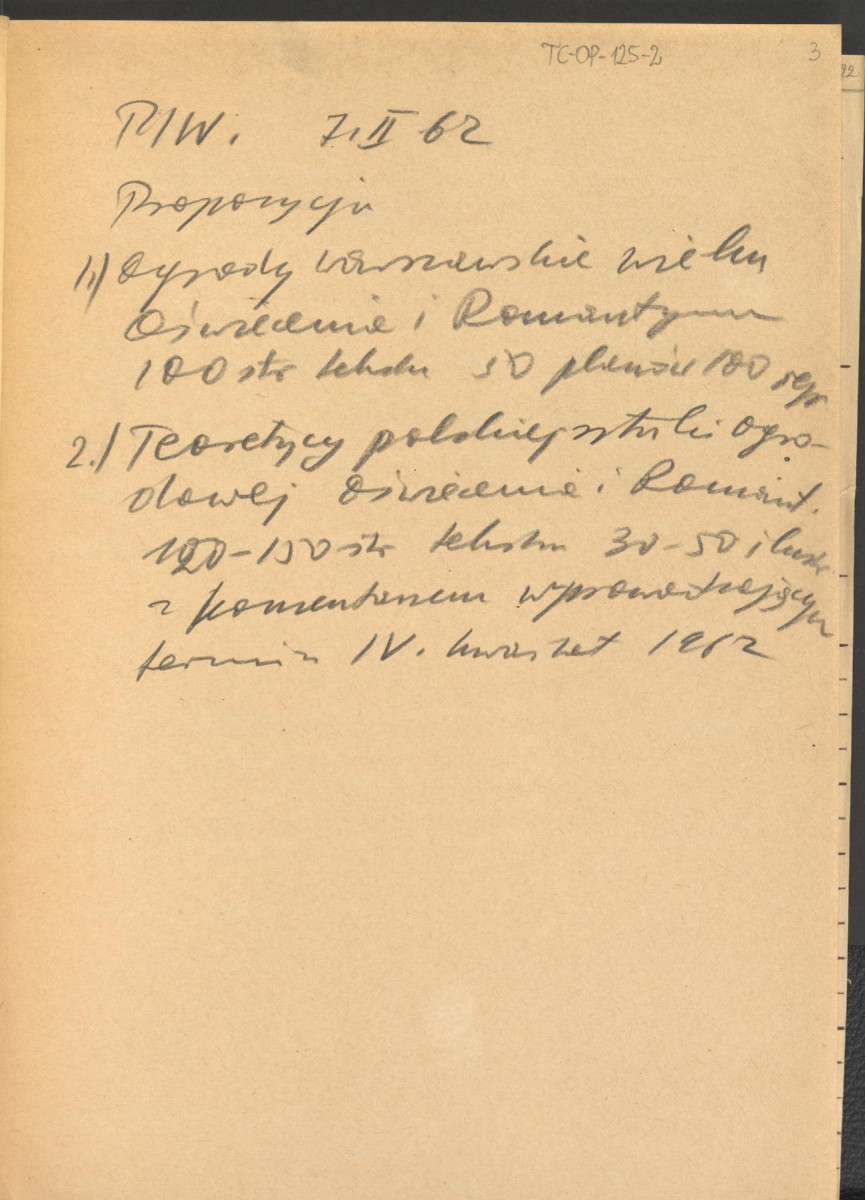 TC-OP-125-2 3
92
PIW. 7.II 62
Propozycja
1.) Ogrody warszawskie wieku
Oświecenia i Romantyzmu
100 str tekstu 50 planów 100 repr
2.) Teoretycy polskiej sztuki ogro-
dowej Oświecenia i Romant.
120-150 str tekstu 30-50 ilustr
z komentarzem wprowadzającym
termin IV. kwartał 1962